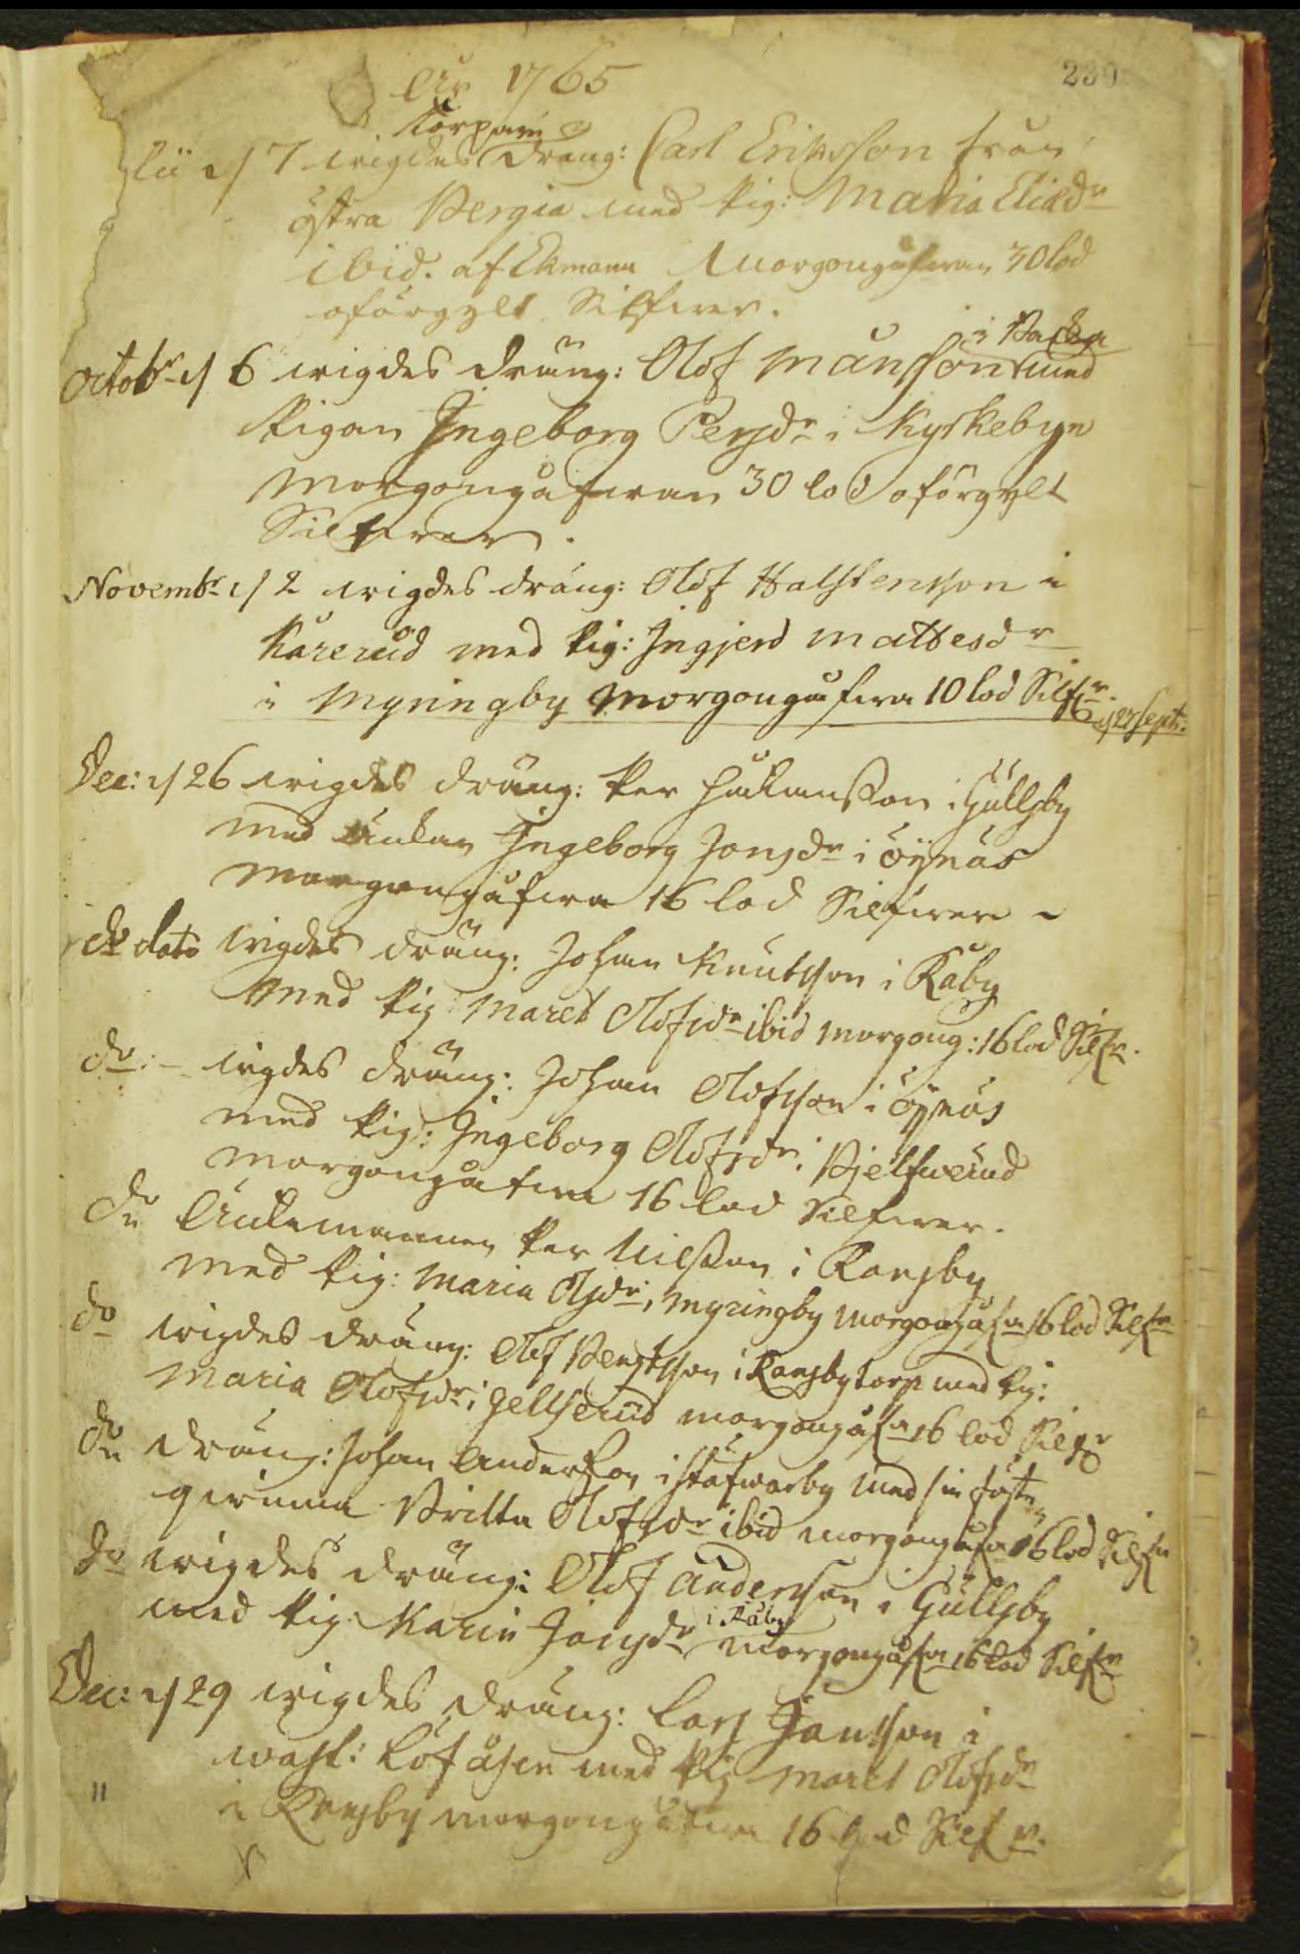 239
År 1765
Torparn
d 7 wigdes Dräng: Carl Eriksson från
östra Bergia med Pig: Maria Eliædr
ibid. af Ekmann Morgongåfwan 30 lod
oförgylt Silfwer.
i Backa
Octobr d 6 wigdes dräng: Olof Månsson med
Pigan Ingeborg Persdr i Kyrkebyn
Morgongåfwan 30 lod oförgylt
Silfwer.
Novembr d 2 wigdes dräng: Olof Halstensson i
Kårerud med Pig: Ingjerd Mattesdr
i Myringby Morgongåfwa 10 lod Silfr.
d 27 Sept:
Dec: d 26 wigdes dräng: Per Håkansson i Gullsby
med Änkan Ingeborg Jonsdr i Öijenäs
Morgongåfwa 16 lod Silfwer
do dato wigdes dräng: Johan Knutsson i Råby
med Pig Maret Olofsdr ibid morgong: 16 lod Silfr.
do: wigdes dräng: Johan Olofsson i Öijenäs
med Pig: Ingeborg Olofsdr i Bjelfwerud
morgongåfwa 16 lod Silfwer.
do Änkemannen Per Nilsson i Ransby
med Pig: Maria Olsdr i Myringby morgongåfa 16 lod Silfr
do wigdes dräng: Olof Bengtsson i Ransbytorp med Pig:
Maria Olofsdr i Gellserud morgongåfa 16 lod Silfr
do dräng: Johan Andersson i Stafwarby med sin fäste
qwinna Britta Olofsdr ibid morgongåfa 16 lod Silfr
do wigdes dräng: Olof Andersson i Gullsby
i Råby
med Pig Karin Jonsdr morgongåfa 16 lod Silfr
Dec: d 29 wigdes dräng: Lars Jansson i
wast: Löfåsen med Pig Maret Olofsdr
i Ransby morgongåfwa 16 lod Silfr.